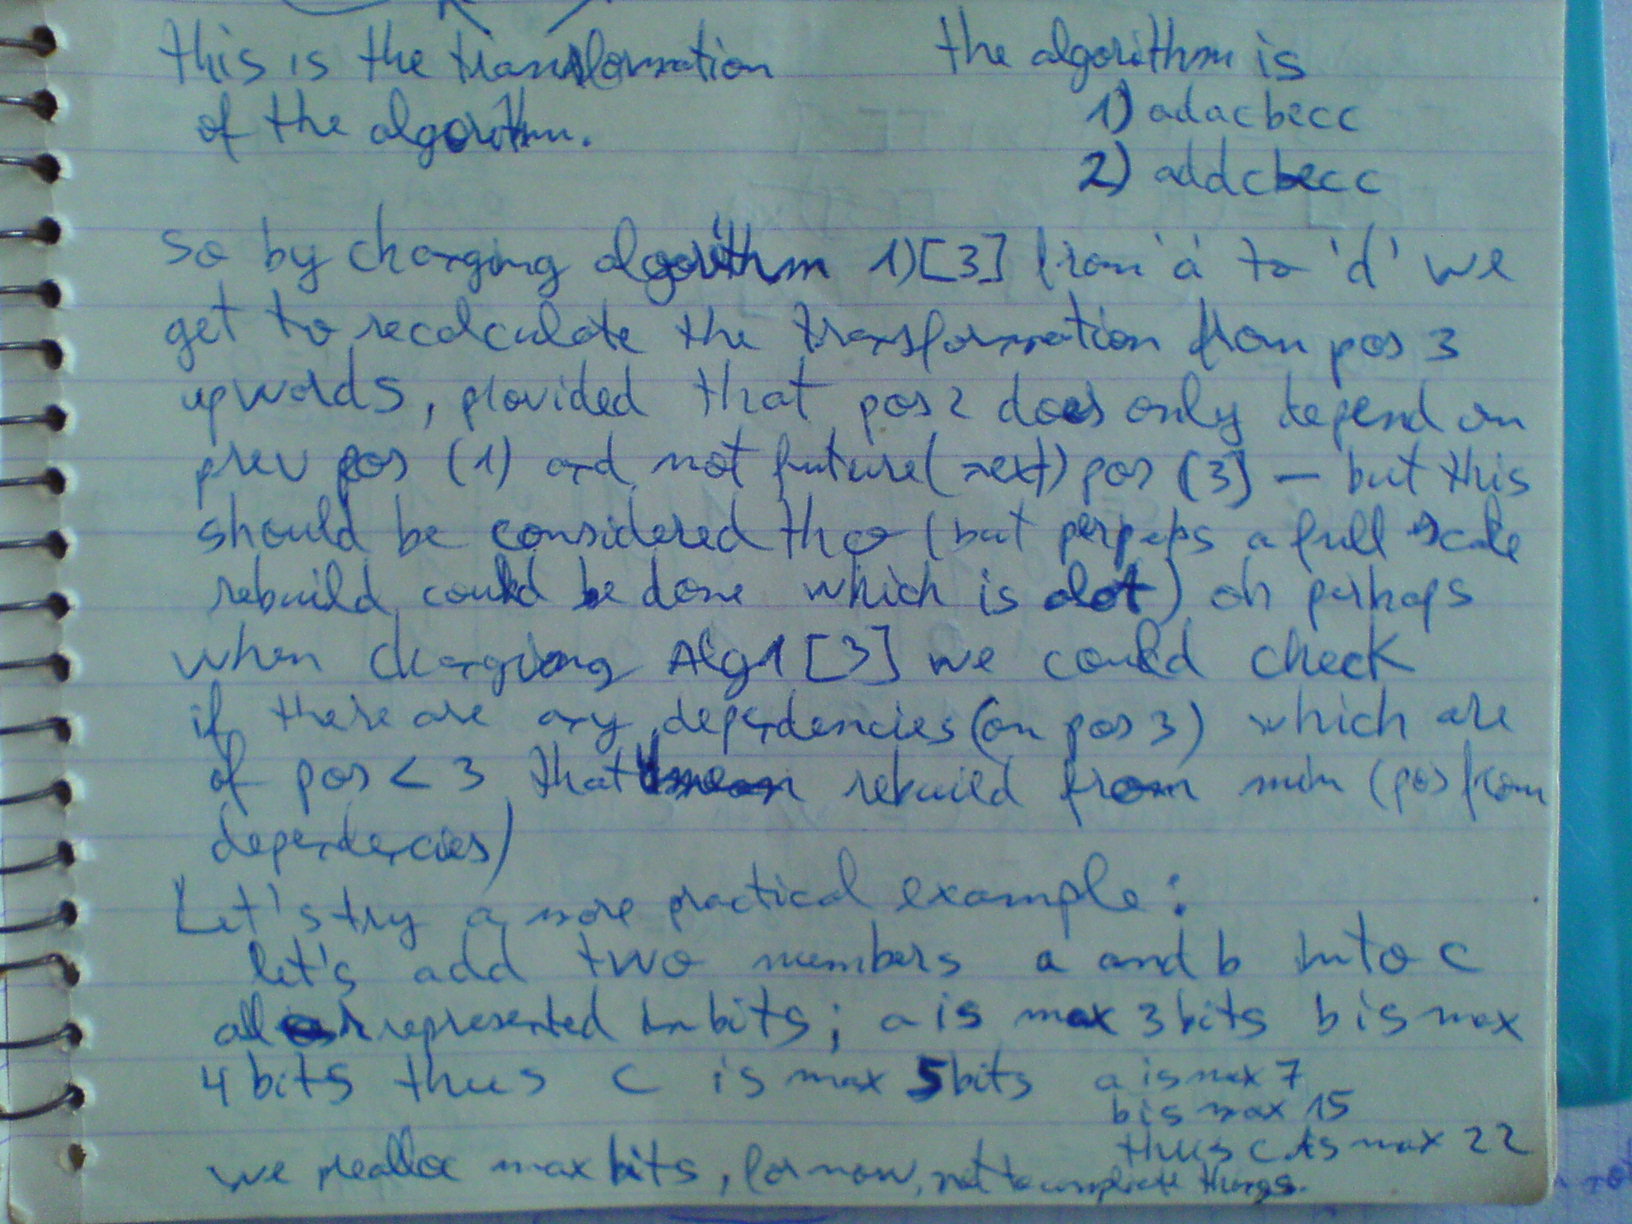 this is the transformation
of the algorithm.
the algorithm is
1) adacbecc
2) addcbecc
So by changing algorithm 1)[3] from 'a' to 'd' we
get to recalculate the transformation from pos 3
upwards, provided that pos 2 does only depend on
prev pos (1) and not future(next) pos (3] — but this
should be considered tho (but perpeps a full scale
rebuild could be done which is alot) or perhaps
when changing Alg1[3] we could check
if there are any dependencies(on pos 3) which are
of pos < 3 that rebuild from min (pos from
dependencies)
Let's try a more practical example:
let's add two numbers a and b into c
all represented in bits; a is max 3bits b is max
4 bits thus c is max 5bits
a is max 7
b is max 15
thus c is max 22
we prealloc max bits, for now, not to complicate things.